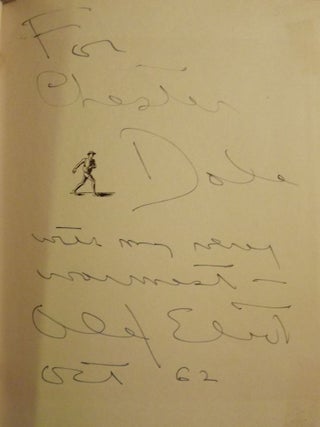 For
Chester
Dale
with my very
warmest –
Alex Eliot
Oct 62